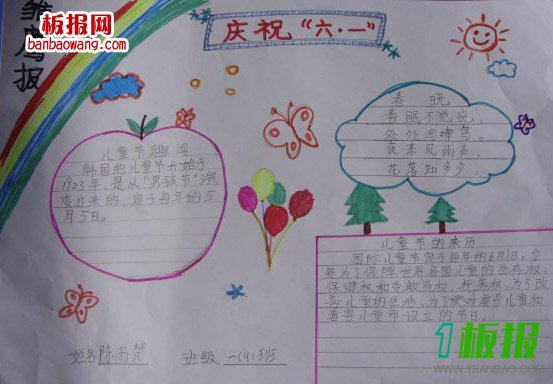 雏
报
板报网
banbaowang.com
庆祝“六·一”
儿童节趣闻
韩国的儿童节开始于
1923年,是从“男孩节”演
变过来的,定于每年的5
月5日。
春晓
春眠不觉晓,
处处闻啼鸟。
夜来风雨声,
花落知多少。
儿童节的来历
国际儿童节定于每年的6月1日,它
是为了保障世界各国儿童的生存权、
保健权和受教育权,抚养权,为了改
善儿童的生活,为了反对虐杀儿童和
毒害儿童而设立的节日。
姓名陈雨
班级 一(9)班
1板报
WWW.1BANBAO.COM